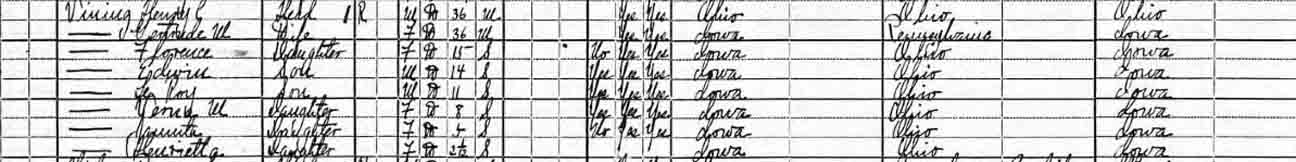 Vining Henry C Head 1 R M W 36 M Yes Yes Ohio Ohio Ohio
— Gertrude M Wife F W 36 M Yes Yes Iowa Pennsylvania Iowa
— Florence Daughter F W 15 S No Yes Yes Iowa Ohio Iowa
— Edwin Son M W 14 S Yes Yes Yes Iowa Ohio Iowa
— Le Roy Son M W 11 S Yes Yes Yes Iowa Ohio Iowa
— Verna M Daughter F W 8 S Yes Yes Yes Iowa Ohio Iowa
— Daughter F W S No Yes Yes Iowa Ohio Iowa
— Henrietta Daughter F W S Iowa Ohio Iowa